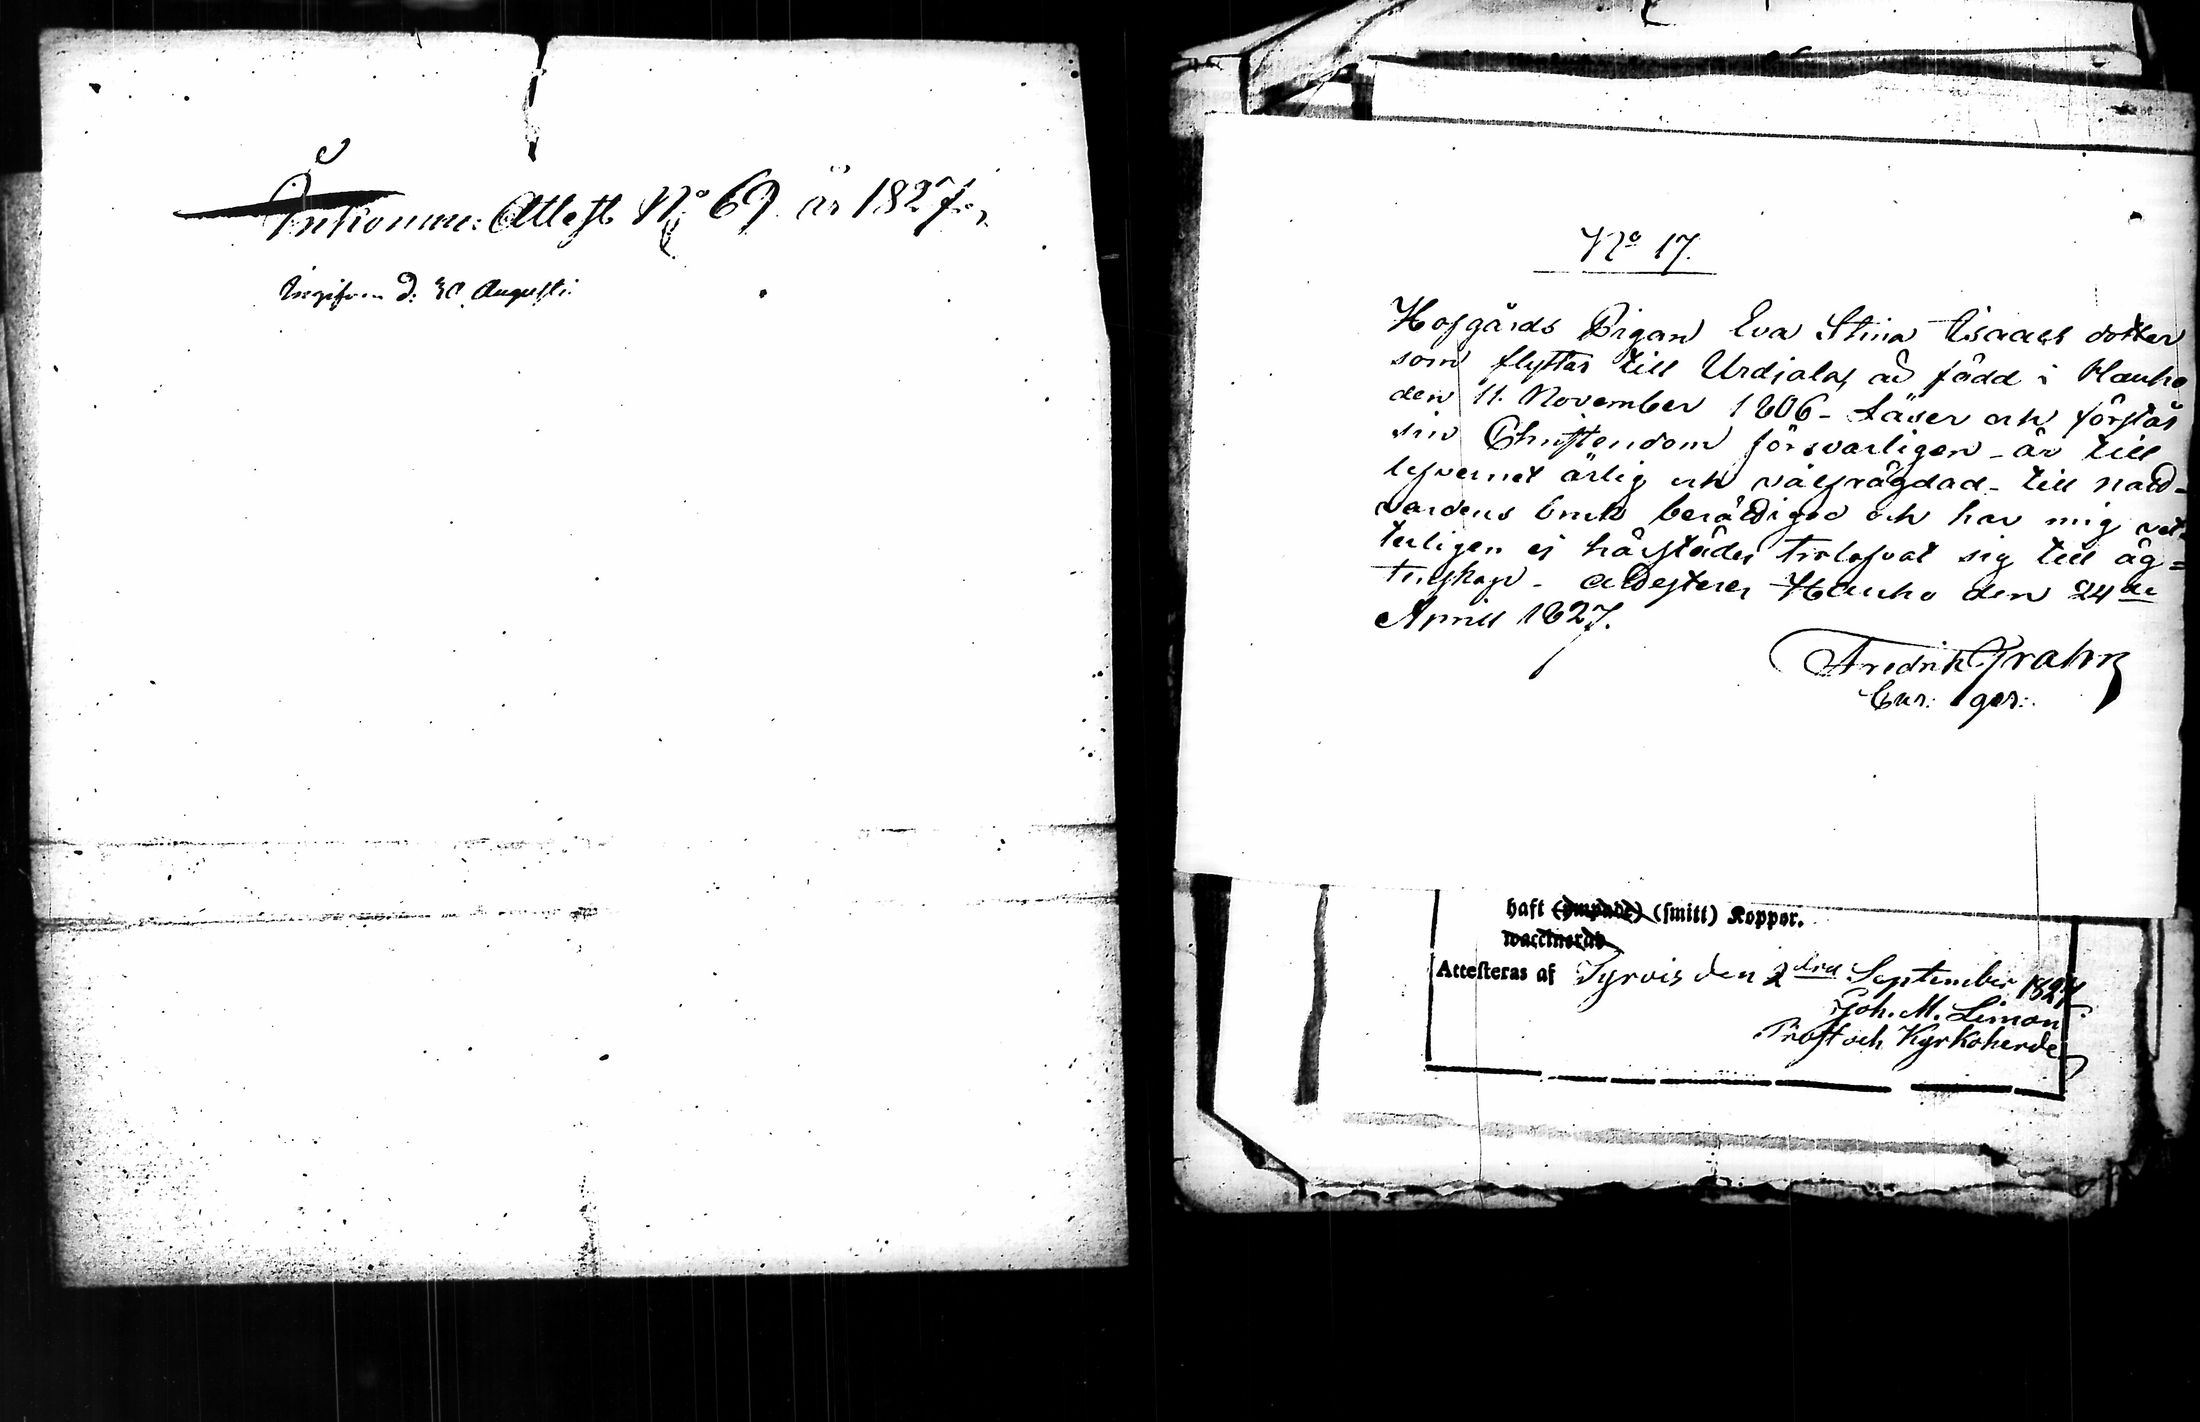 Inkomne Attest No 69. år 1827
Ingifven d: 30 Augusti
No 17.
Hofgårds Pigan Eva Stina Isaacs dotter
som flyttar till Urdiala, är född i Hauho
den 11. November 1806 - Läser och förstår
sin Christendom försvarligen - är till
lefvernet ärlig och välfrägdad - till natt-
vardens bruk berättigad och har mig vet-
terligen ej härstädes trolofvat sig till äg=
tenskap - attesterer Hauho den 24de
Aprill 1827.
Fredrik Prahn
Cur: ger:
haft (ympade) (smitt) Koppor.
waccinerad
Attesteras af Tyrvis den 2dra September 1827.
Joh. M. Limon
Prost och Kyrkoherde